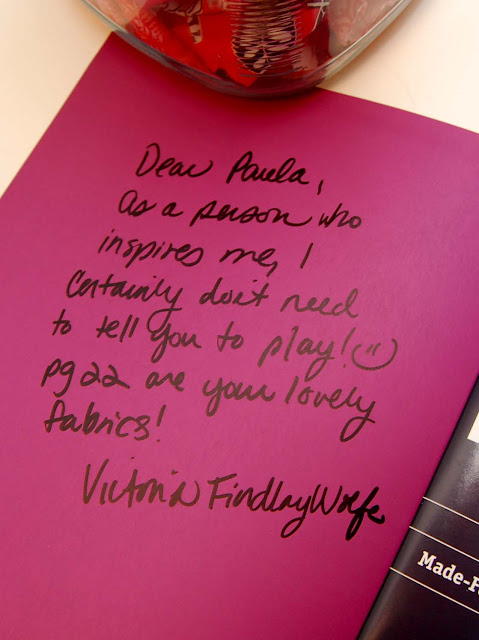 Dear Paula,
as a person who
inspires me, I
Certainly don't need
to tell you to play!
pg 22 are your lovely
fabrics!
Victoria Findlay Wolfe
Made-